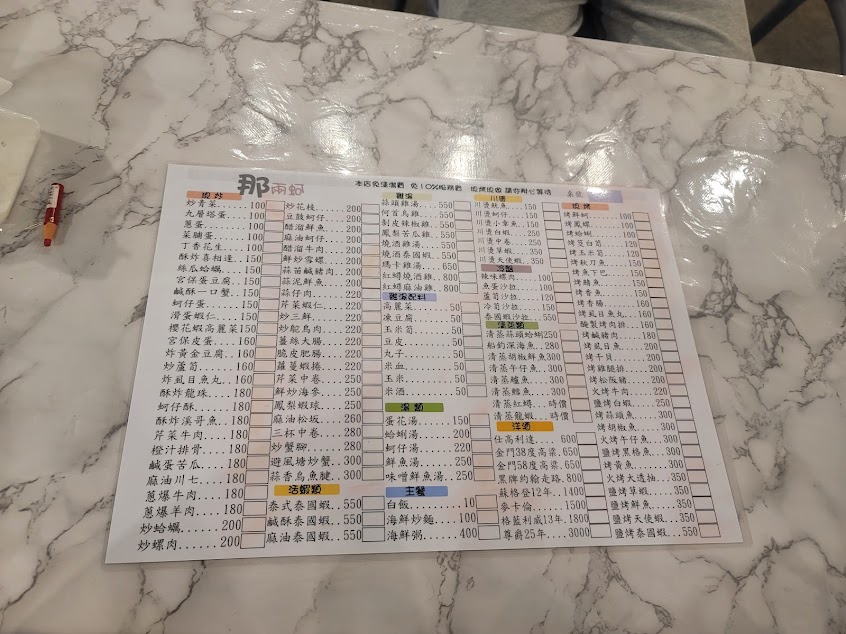 那兩蚵
本店免清潔費 免10%服務費 現烤現做 請耐心等待 桌號
現炒
炒青菜...100
九層塔蛋...100
蔥蛋...100
菜脯蛋...100
丁香花生...100
酥炸喜相逢...150
絲瓜蛤蠣...150
宮保蛋豆腐...150
鹹酥一口蟹...150
蚵仔蛋...150
滑蛋蝦仁...150
櫻花蝦高麗菜150
宮保皮蛋...160
炸黃金豆腐...160
炒蘆筍...160
炸虱目魚丸...160
酥炸龍珠...180
蚵仔酥...180
酥炸溪哥魚...180
芹菜牛肉...180
橙汁排骨...180
鹹蛋苦瓜...180
麻油川七...180
蔥爆牛肉...180
蔥爆羊肉...180
炒蛤蠣...200
炒螺肉...200
炒花枝...200
豆鼓蚵仔...200
醋溜鮮魚...200
麻油蚵仔...200
醋溜牛肉...200
鮮炒雪螺...200
蒜苗鹹豬肉...200
蒜泥鮮魚...200
蒜仔肉...220
芹菜蝦仁...220
炒三鮮...220
炒鴕鳥肉...220
薑絲大腸...220
脆皮肥腸...220
蘿蔓蝦捲...220
芹菜中卷...250
鮮炒海參...250
鳳梨蝦球...250
麻油松坂...260
三杯中卷...280
炒蟹腳...280
避風塘炒蟹...300
蒜香烏魚腱...300
活蝦類
泰式泰國蝦...550
鹹酥泰國蝦...550
麻油泰國蝦...550
雞湯
蒜頭雞湯...550
何首烏雞...550
剝皮辣椒雞...550
鳳梨苦瓜雞...550
燒酒雞湯...550
燒酒泰國蝦...550
瑪卡雞湯...650
紅蟳燒酒雞...800
紅蟳麻油雞...800
雞湯配料
高麗菜...50
凍豆腐...50
玉米筍...50
豆皮...50
丸子...50
米血...50
玉米...50
米酒...50
湯類
蛋花湯...150
蛤蜊湯...200
蚵仔湯...200
鮮魚湯...250
味噌鮮魚湯...250
主餐
白飯...10
海鮮炒麵...100
海鮮粥...400
川燙
川燙魷魚...150
川燙蚵仔...150
川燙小章魚...150
川燙白蝦...250
川燙中卷...250
川燙草蝦...350
川燙天使蝦...350
冷盤
辣味螺肉...100
魚蛋沙拉...100
蘆筍沙拉...120
冷筍沙拉...150
泰國蝦沙拉...550
清蒸類
清蒸蒜頭蛤蜊250
船釣深海魚...280
清蒸胡椒鮮魚300
清蒸午仔魚...300
清蒸鱸魚...300
清蒸鱈魚...300
清蒸紅蟳...時價
清蒸龍蝦...時價
洋酒
仕高利達...600
金門38度高梁...650
金門58度高梁...650
黑牌約翰走路...800
蘇格登12年...1400
麥卡倫...1500
格蘭利威13年...1800
尊爵25年...3000
現烤
烤鮮蚵...100
烤鳳螺...100
烤蛤蜊...100
烤茭白筍...120
烤玉米筍...120
烤秋刀魚...150
烤魚下巴...150
烤鯖魚...150
烤香魚...150
烤香腸...160
烤虱目魚丸...160
醃製烤肉排...160
烤鹹豬肉...160
烤虱目魚...160
烤干貝...200
烤雞腿排...200
烤松阪豬...200
火烤牛肉...220
鹽烤白蝦...250
烤蒜頭魚...300
烤胡椒魚...300
火烤午仔魚...300
鹽烤黑格魚...300
烤黃魚...300
火烤大透抽...350
鹽烤草蝦...350
鹽烤鮮魚...350
鹽烤天使蝦...350
鹽烤泰國蝦...550